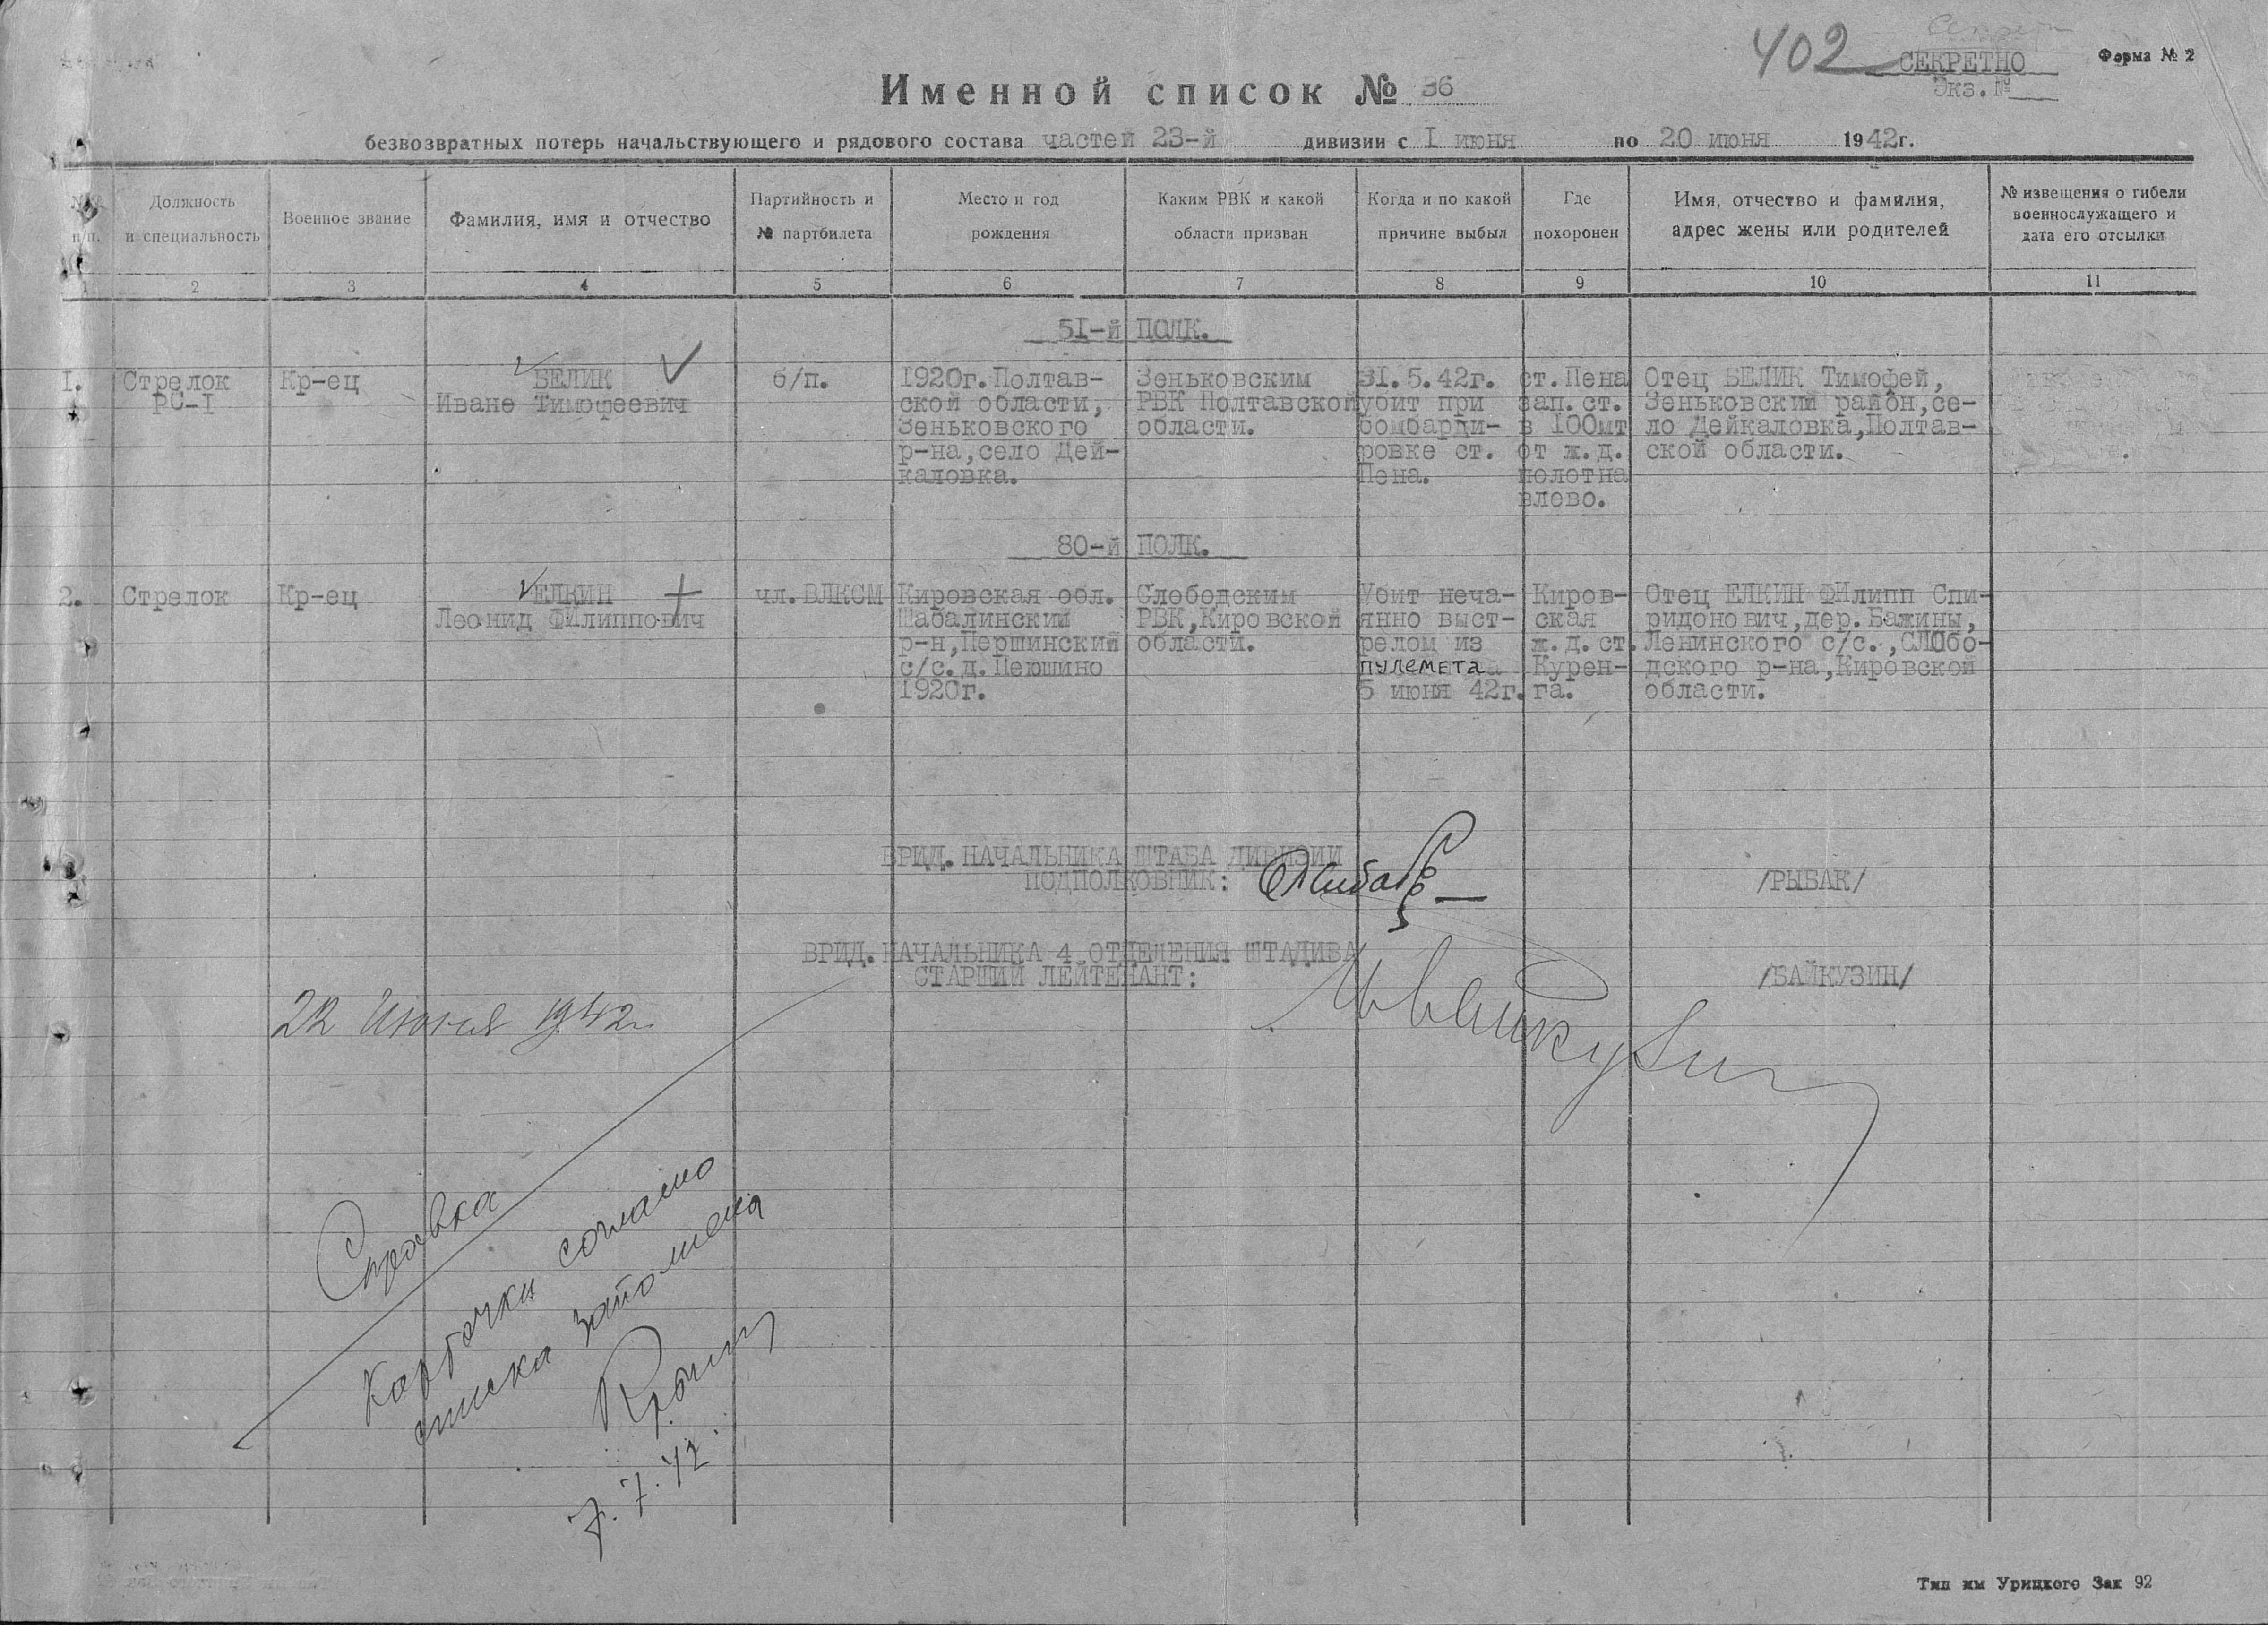 402
СЕКРЕТНО
Экз.№
Форма № 2
Именной список № 36
безвозвратных потерь начальствующего и рядового состава частей 23-й дивизии с I июня по 20 июня 1942г.
п/п.
Должность
и специальность
Военное звание
Фамилия, имя и отчество
Партийность и
№ партбилета
Место и год
рождения
Каким РВК и какой
области призван
Когда и по какой
причине выбыл
Где
похоронен
Имя, отчество и фамилия,
адрес жены или родителей
№ извещения о гибели
военнослужащего и
дата его отсылки
1 2 3 4 5 6 7 8 9 10 11
51-й ПОЛК.
I.
Стрелок
РС-I
Кр-ец
БЕЛИК
Иване Тимофеевич
б/п.
1920г.Полтав-
ской области,
Зеньковского
р-на,село Дей-
каловка.
Зеньковским
РВК Полтавской
области.
31.5.42г.
убит при
бомбарди-
ровке ст.
Пена.
ст.Пена
зап.ст.
в 100мт
от ж.д.
полотна
влево.
Отец БЕЛИК Тимофей,
Зеньковский район,се-
ло Дейкаловка,Полтав-
ской области.
80-й ПОЛК.
2.
Стрелок
Кр-ец
ЕЛКИН
Леонид ФИлиппович
чл.ВЛКСМ
Кировская обл.
Шабалинский
р-н,Першинский
с/с.д.Першино
1920г.
Слободским
РВК,Кировской
области.
Убит неча-
янно выст-
релом из
пулемета
5 июня 42г.
Киров-
ская
ж.д.ст.
Курен-
га.
Отец ЕЛКИН ФИлипп Спи-
ридонович,дер.Бажины,
Ленинского с/с.,СЛОбо-
дского р-на,Кировской
области.
ВРИД.НАЧАЛЬНИКА ШТАБА ДИВИЗИИ
ПОДПОЛКОВНИК:
/РЫБАК/
ВРИД.НАЧАЛЬНИКА 4 ОТДЕЛЕНИЯ ШТАДИВА
СТАРШИЙ ЛЕЙТЕНАНТ:
/БАЙКУЗИН/
22 Июня 1942г
Справка
Карточки согласно
списка заполнена
7.7.42.
Тип им Урицкого Зак 92